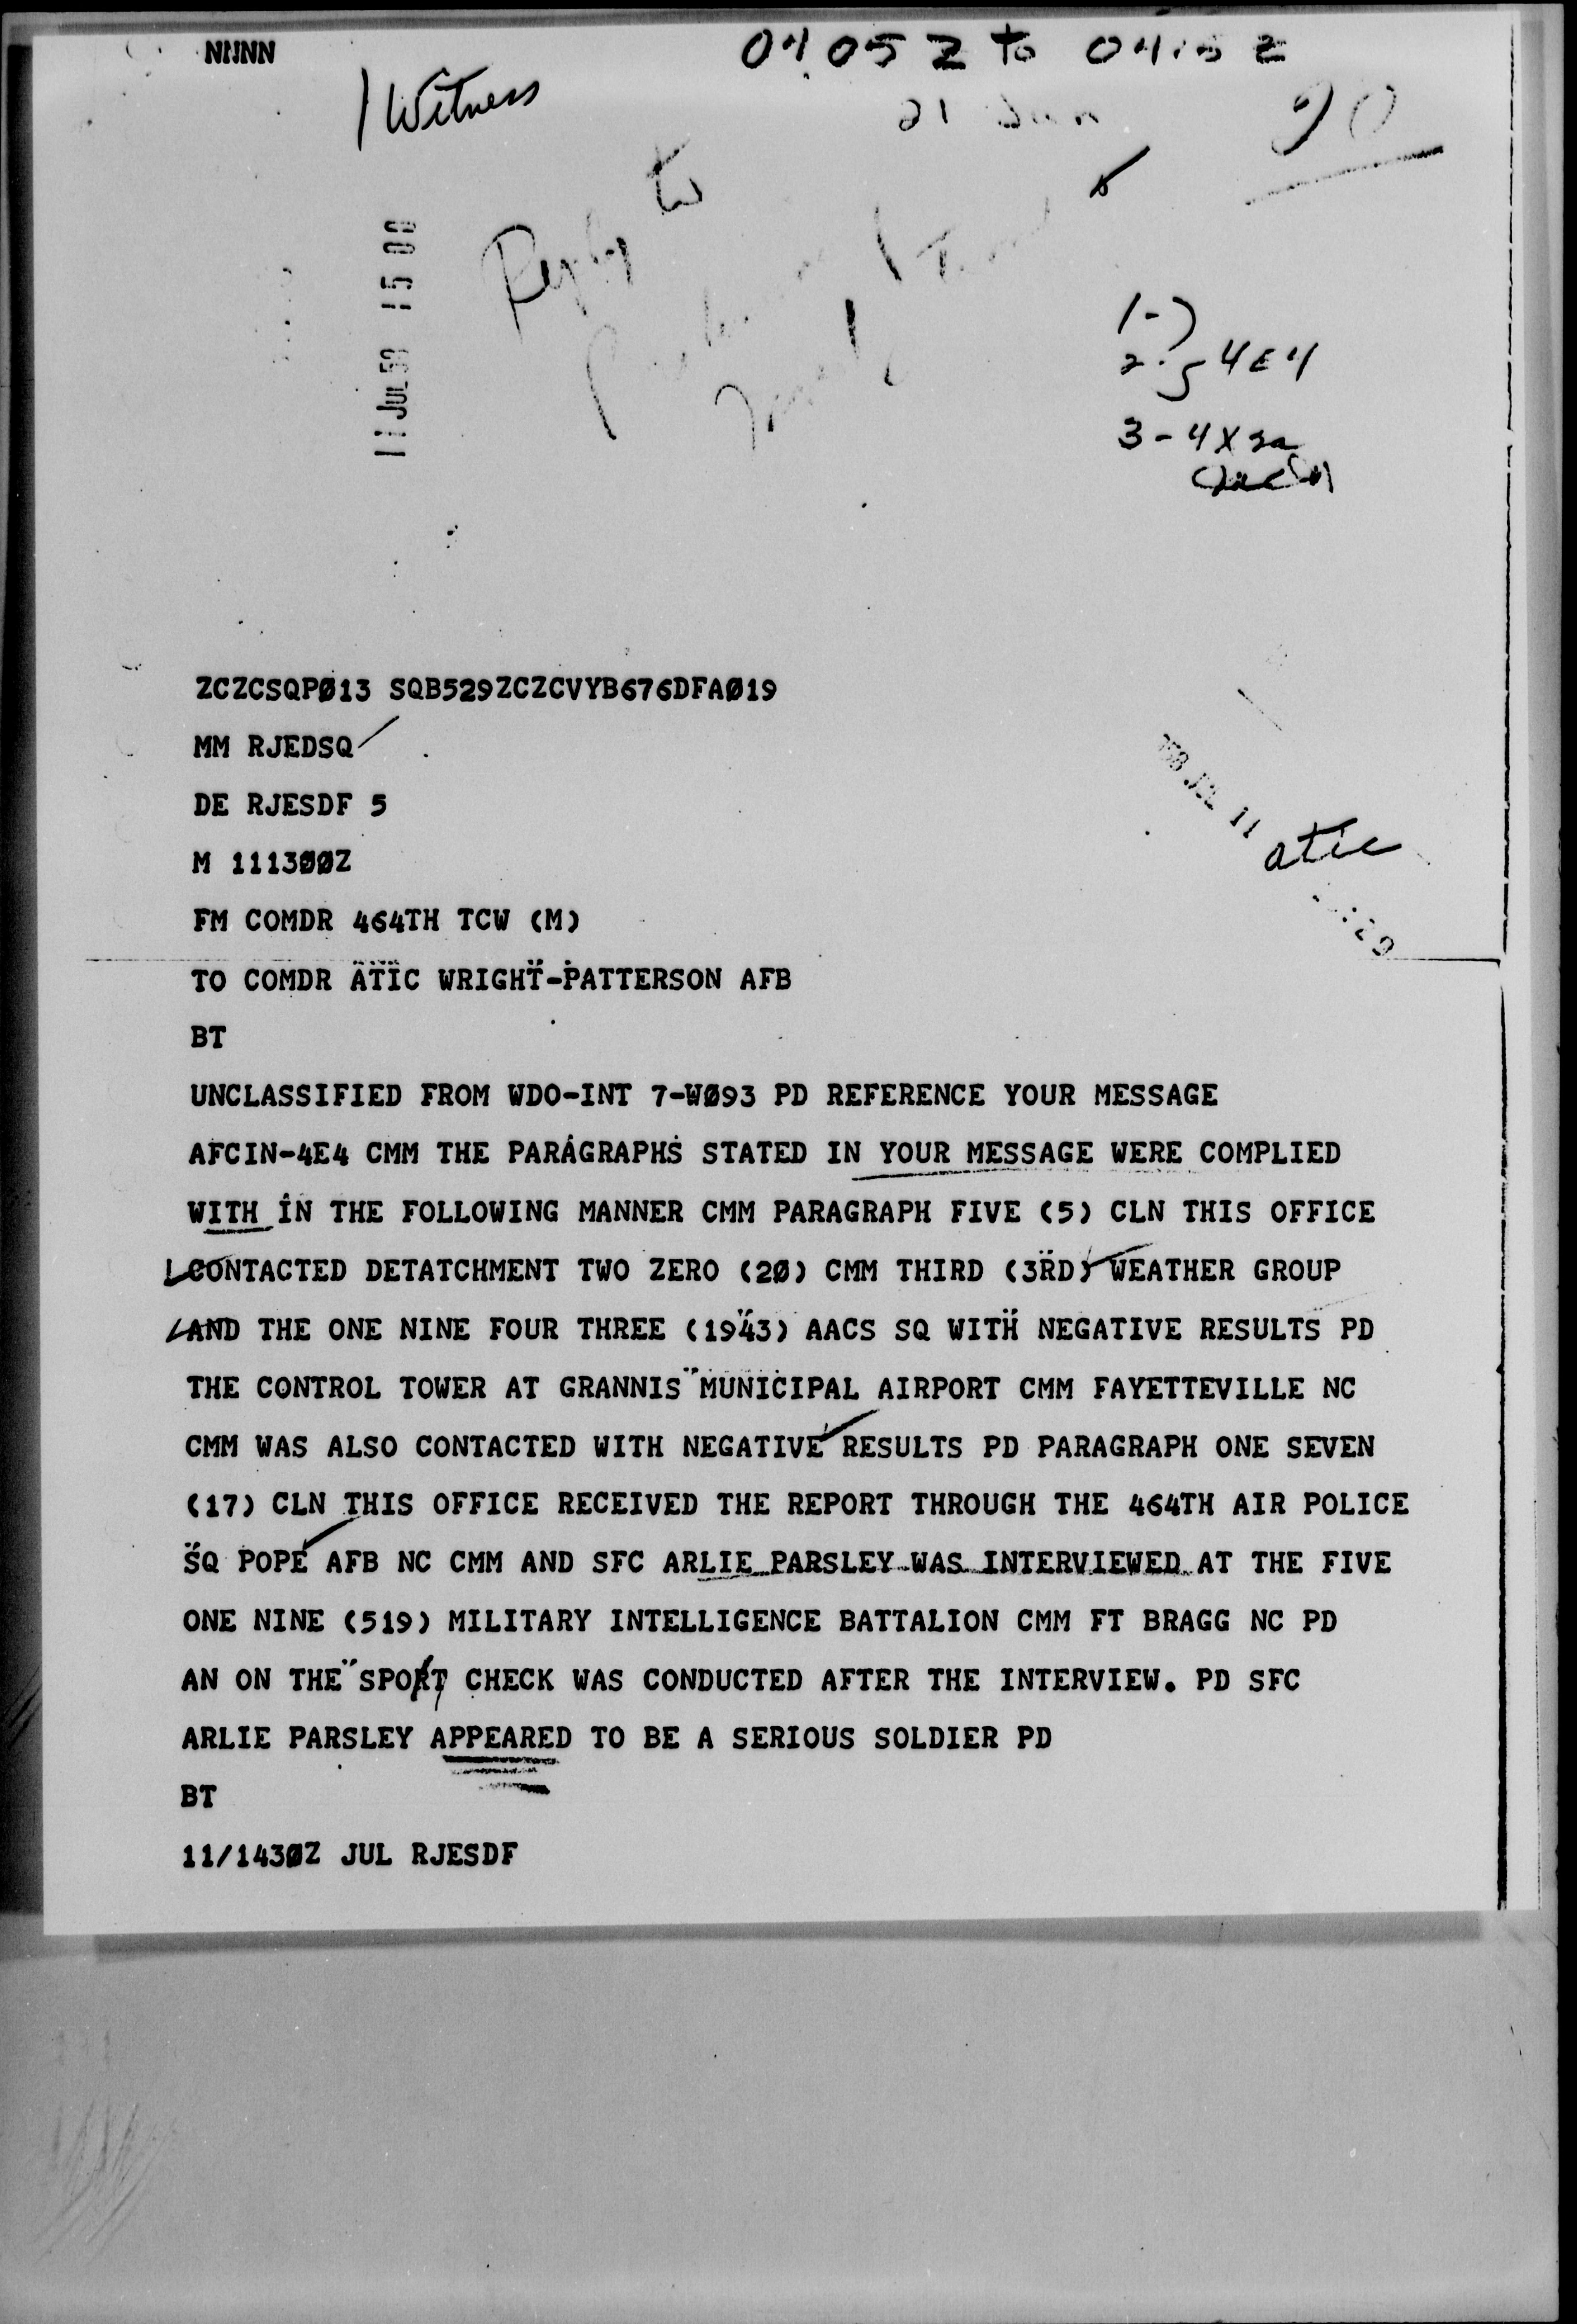 NNNN
0405Z to 0415Z
1 Witness
21 Jun
Reply to
11 JUL 58 15 00
1-)
2-) 4E4
3 - 4X2a
ZCZCSQPØ13 SQB529ZCZCVYB676DFAØ19
MM RJEDSQ
DE RJESDF 5
'58 JUL 11
M 1113ØØZ
atic
FM COMDR 464TH TCW (M)
TO COMDR ATIC WRIGHT-PATTERSON AFB
BT
UNCLASSIFIED FROM WDO-INT 7-WØ93 PD REFERENCE YOUR MESSAGE
AFCIN-4E4 CMM THE PARAGRAPHS STATED IN YOUR MESSAGE WERE COMPLIED
WITH IN THE FOLLOWING MANNER CMM PARAGRAPH FIVE (5) CLN THIS OFFICE
CONTACTED DETATCHMENT TWO ZERO (2Ø) CMM THIRD (3RD) WEATHER GROUP
AND THE ONE NINE FOUR THREE (1943) AACS SQ WITH NEGATIVE RESULTS PD
THE CONTROL TOWER AT GRANNIS MUNICIPAL AIRPORT CMM FAYETTEVILLE NC
CMM WAS ALSO CONTACTED WITH NEGATIVE RESULTS PD PARAGRAPH ONE SEVEN
(17) CLN THIS OFFICE RECEIVED THE REPORT THROUGH THE 464TH AIR POLICE
SQ POPE AFB NC CMM AND SFC ARLIE PARSLEY WAS INTERVIEWED AT THE FIVE
ONE NINE (519) MILITARY INTELLIGENCE BATTALION CMM FT BRAGG NC PD
AN ON THE SPORT CHECK WAS CONDUCTED AFTER THE INTERVIEW. PD SFC
ARLIE PARSLEY APPEARED TO BE A SERIOUS SOLDIER PD
BT
11/143ØZ JUL RJESDF